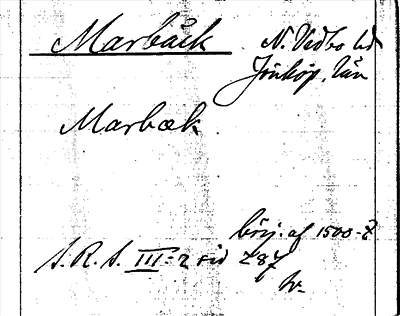 Marbäck N. Vedbo hd
Jönköp. län
Marbæk
börj. af 1500-t
S.R.S. III-2 sid 287